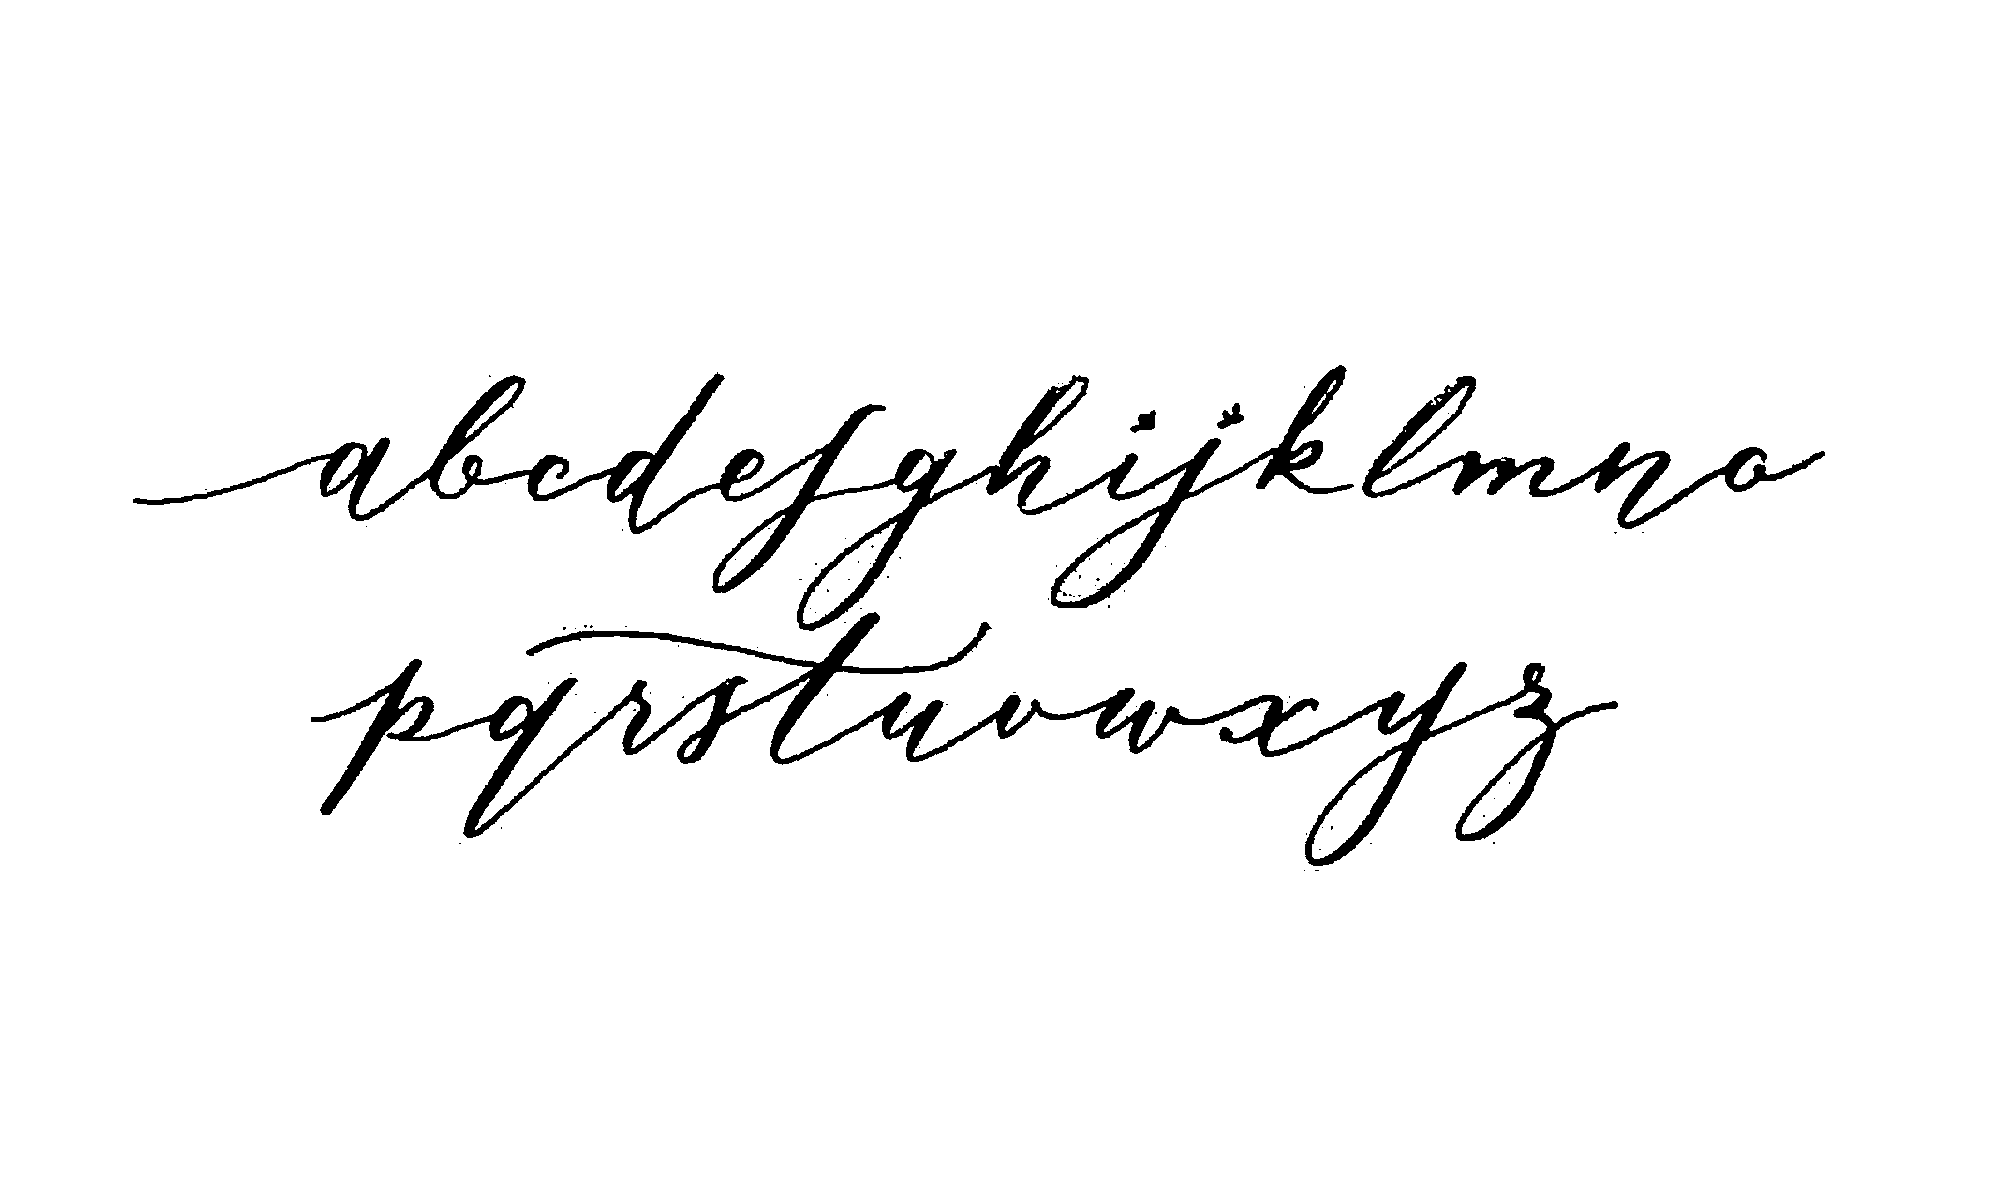 abcdefghijklmno
pqrstuvwxyz